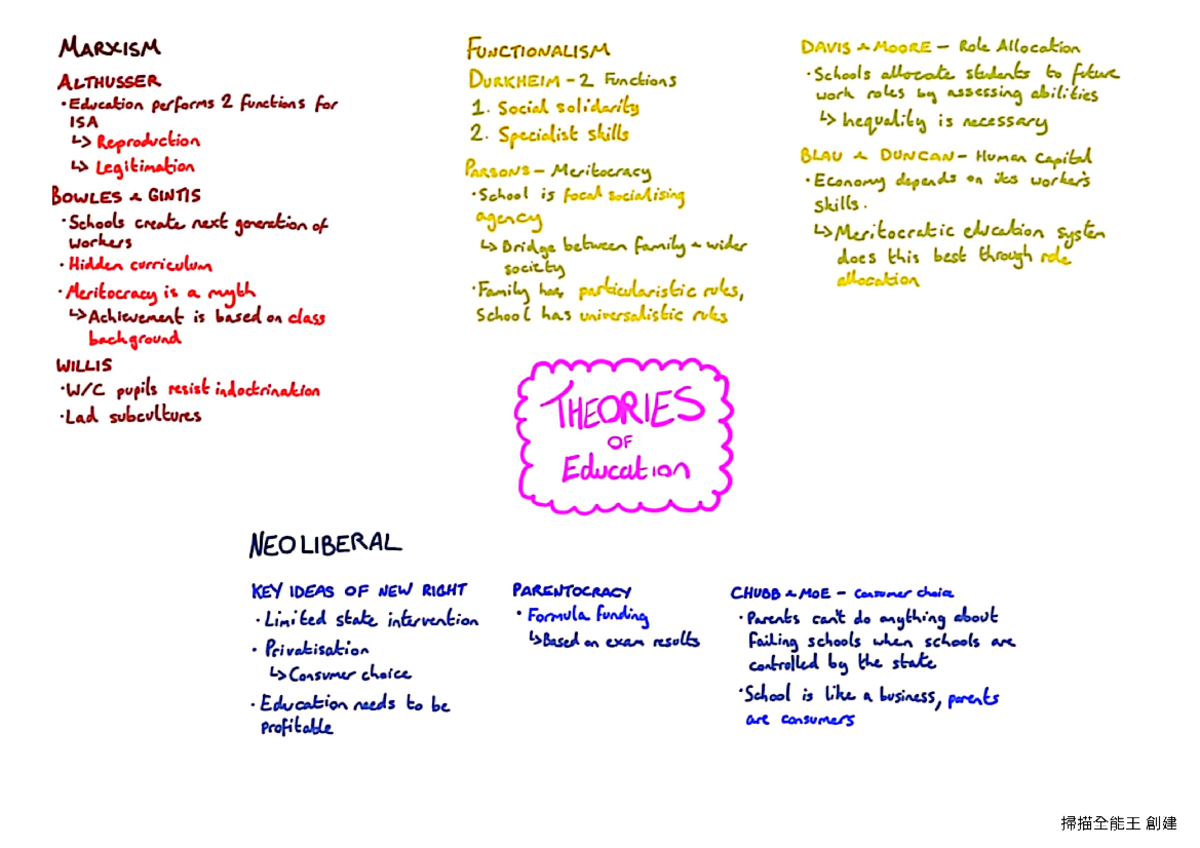 MARXISM
ALTHUSSER
· Education performs 2 functions for
ISA
↳ Reproduction
↳ Legitimation
BOWLES & GINTIS
· Schools create next generation of
workers
· Hidden curriculum
· Meritocracy is a myth
↳ Achievement is based on class
background
WILLIS
· W/C pupils resist indoctrination
· Lad subcultures
FUNCTIONALISM
DURKHEIM - 2 Functions
1. Social solidarity
2. Specialist skills
PARSONS - Meritocracy
· School is focal socialising
agency
↳ Bridge between family & wider
society
· Family has particularistic rules,
School has universalistic rules
DAVIS & MOORE - Role Allocation
· Schools allocate students to future
work roles by assessing abilities
↳ Inequality is necessary
BLAU & DUNCAN - Human Capital
· Economy depends on its worker's
skills.
↳ Meritocratic education system
does this best through role
allocation
THEORIES
OF
Education
NEOLIBERAL
KEY IDEAS OF NEW RIGHT
· Limited state intervention
· Privatisation
↳ Consumer choice
· Education needs to be
profitable
PARENTOCRACY
· Formula funding
↳ Based on exam results
CHUBB & MOE - Consumer choice
· Parents can't do anything about
failing schools when schools are
controlled by the state
· School is like a business, parents
are consumers
掃描全能王 創建